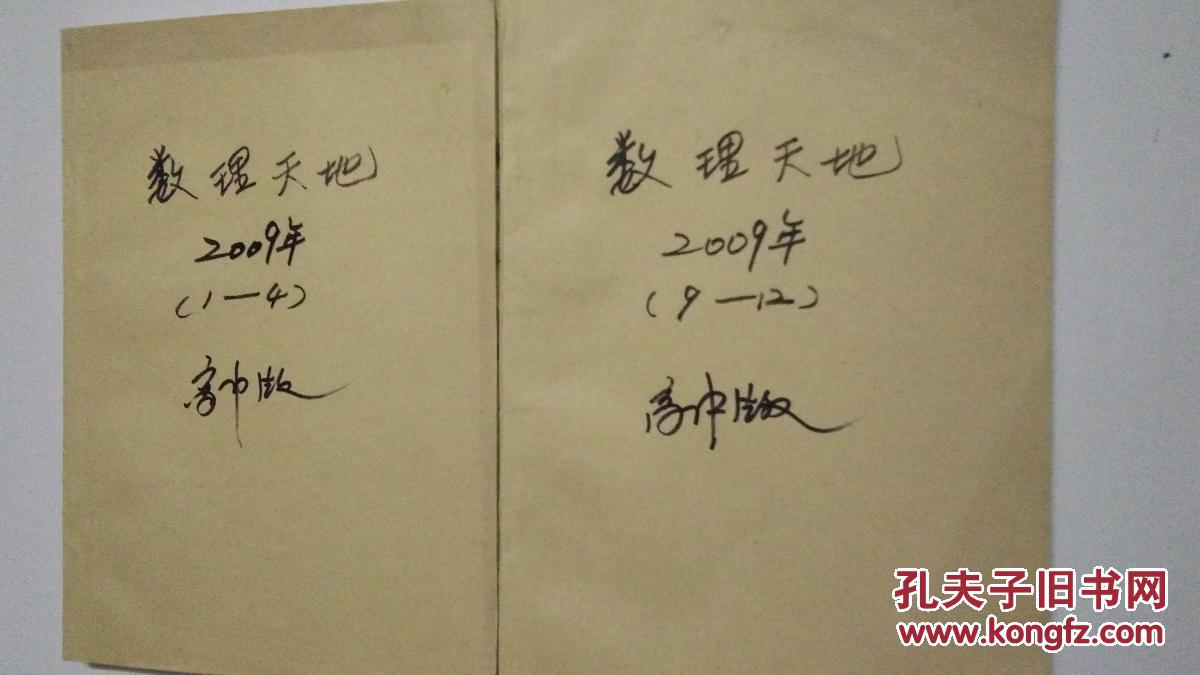 数理天地
2009年
(1—4)
高中版
数理天地
2009年
(9—12)
高中版
孔夫子旧书网
www.kongfz.com